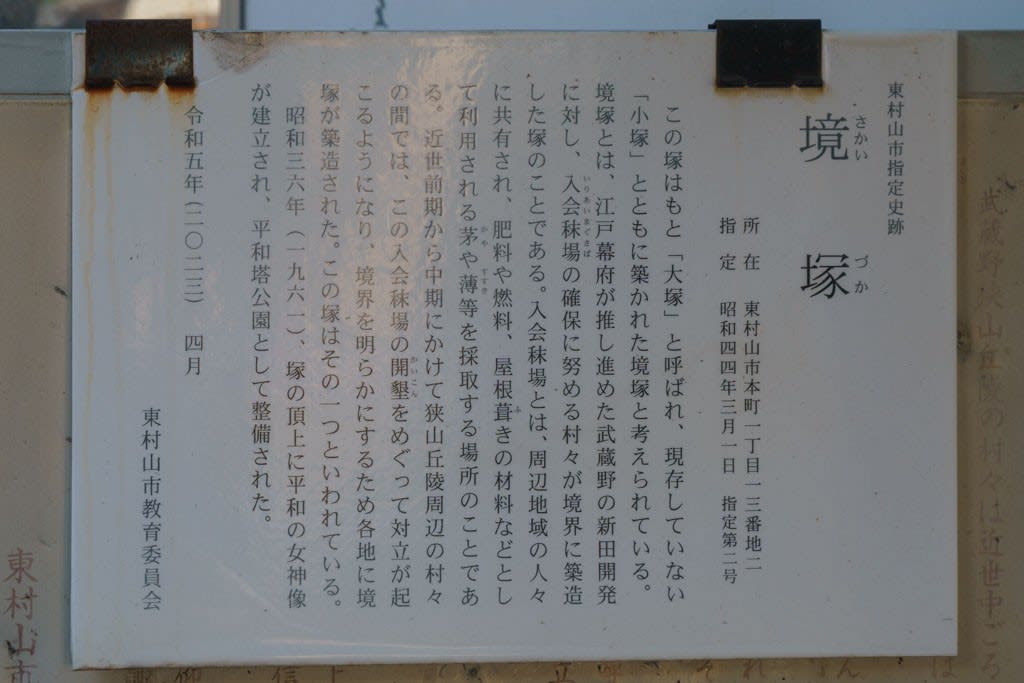 東村山市指定史跡
境塚
さかいづか
所在 東村山市本町一丁目一三番地二
指定 昭和四四年三月一日 指定第二号
この塚はもと「大塚」と呼ばれ、現存していない
「小塚」とともに築かれた境塚と考えられている。
境塚とは、江戸幕府が推し進めた武蔵野の新田開発
に対し、入会秣場の確保に努める村々が境界に築造
いりあいまぐさば
した塚のことである。入会秣場とは、周辺地域の人々
に共有され、肥料や燃料、屋根葺きの材料などとし
ふ
て利用される茅や薄等を採取する場所のことであ
かや すすき
る。近世前期から中期にかけて狭山丘陵周辺の村々
の間では、この入会秣場の開墾をめぐって対立が起
かいこん
こるようになり、境界を明らかにするため各地に境
塚が築造された。この塚はその一つといわれている。
昭和三六年(一九六一)、塚の頂上に平和の女神像
が建立され、平和塔公園として整備された。
令和五年(二〇二三) 四月
東村山市教育委員会
武蔵野狭山丘陵の村々は近世中ごろ
東村山市